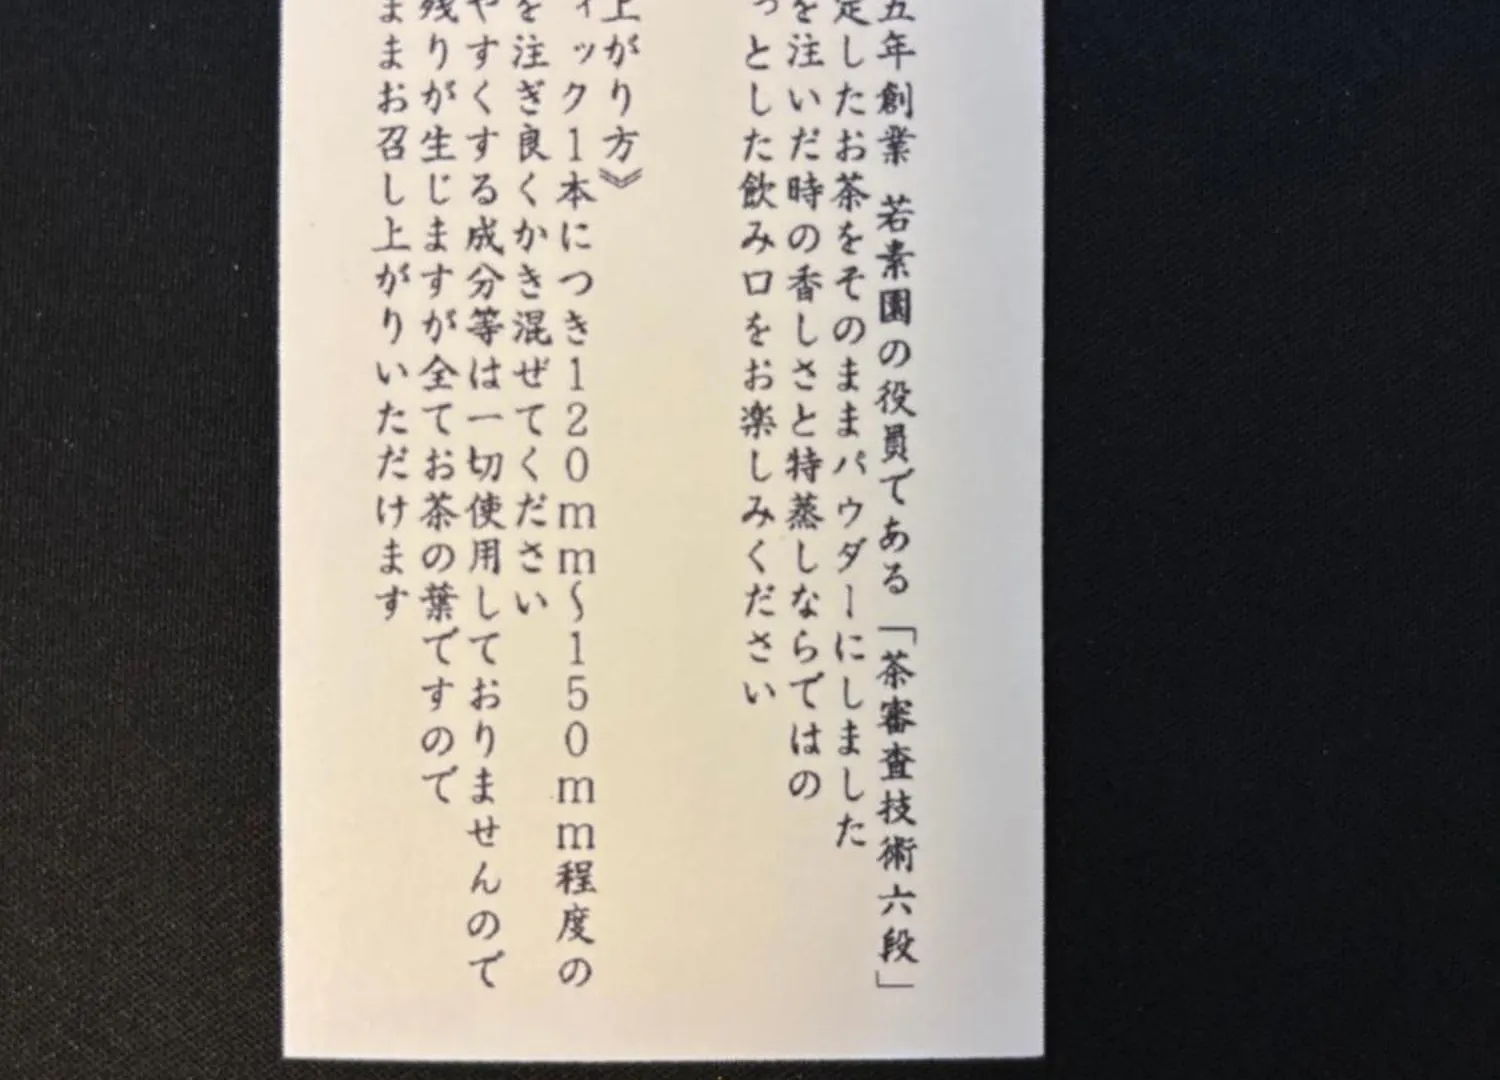 五年創業 若素園の役員である「茶審査技術六段」
定したお茶をそのままパウダーにしました
を注いだ時の香しさと特蒸しならではの
っとした飲み口をお楽しみください
上がり方》
ィック1本につき120mm~150mm程度の
を注ぎ良くかき混ぜてください
やすくする成分等は一切使用しておりませんので
残りが生じますが全てお茶の葉ですので
ままお召し上がりいただけます